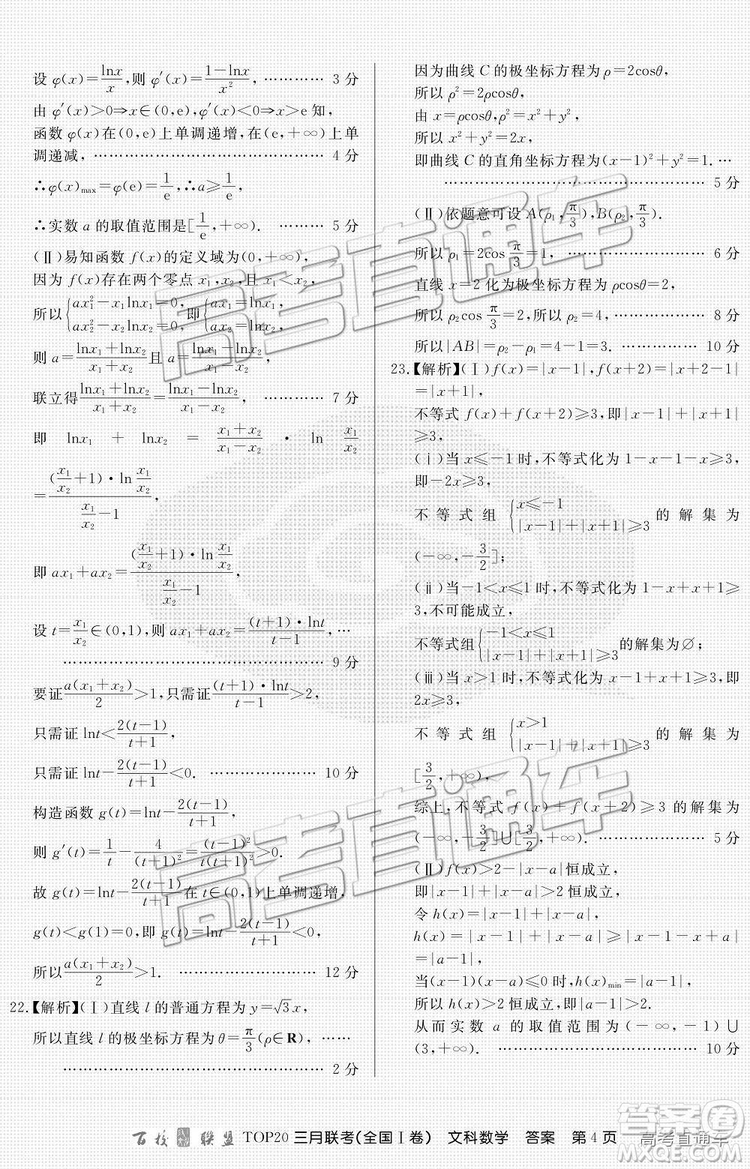 设 φ(x)=lnx/x,则 φ′(x)=(1-lnx)/x²,………… 3 分
由 φ′(x)>0⇒x∈(0,e),φ′(x)<0⇒x>e 知,
函数 φ(x)在(0,e)上单调递增,在(e,+∞)上单
调递减,…………………………………… 4 分
∴φ(x)max=φ(e)=1/e,∴a≥1/e,
∴实数 a 的取值范围是[1/e,+∞). ……… 5 分
(Ⅱ)易知函数 f(x)的定义域为(0,+∞).
因为 f(x)存在两个零点 x₁,x₂,且 x₁<x₂,
所以{ax₁²-x₁lnx₁=0, ax₂²-x₂lnx₂=0, 即{ax₁-lnx₁=0, ax₂-lnx₂=0,
则 a=(lnx₁+lnx₂)/(x₁+x₂)且 a=(lnx₁-lnx₂)/(x₁-x₂),
联立得(lnx₁+lnx₂)/(lnx₁-lnx₂)=(x₁+x₂)/(x₁-x₂), ………… 7 分
即 lnx₁ + lnx₂ = (x₁+x₂)/(x₁-x₂) · ln x₁/x₂
=((x₁/x₂+1)·ln x₁/x₂)/(x₁/x₂-1),
即 ax₁+ax₂=((x₁/x₂+1)·ln x₁/x₂)/(x₁/x₂-1),
设 t=x₁/x₂∈(0,1),则 ax₁+ax₂=((t+1)·lnt)/(t-1),…
………………………………………… 9 分
要证a(x₁+x₂)/2>1,只需证((t+1)·lnt)/(t-1)>2,
只需证 lnt<2(t-1)/(t+1),
只需证 lnt-2(t-1)/(t+1)<0. ……………… 10 分
构造函数 g(t)=lnt-2(t-1)/(t+1),
则 g′(t)=1/t-4/(t+1)²=(t-1)²/(t(t+1)²)>0.
故 g(t)=lnt-2(t-1)/(t+1)在 t∈(0,1)上单调递增,
g(t)<g(1)=0,即 g(t)=lnt-2(t-1)/(t+1)<0,
所以a(x₁+x₂)/2>1. …………………… 12 分
22.【解析】(Ⅰ)直线 l 的普通方程为 y=√3x,
所以直线 l 的极坐标方程为 θ=π/3(ρ∈R),……
………………………………………… 2 分
因为曲线 C 的极坐标方程为 ρ=2cosθ,
所以 ρ²=2ρcosθ,
由 x=ρcosθ,ρ²=x²+y²,
所以 x²+y²=2x,
即曲线 C 的直角坐标方程为(x-1)²+y²=1.…
………………………………………… 5 分
(Ⅱ)依题意可设 A(ρ₁,π/3),B(ρ₂,π/3).
所以 ρ₁=2cos π/3=1, ………………… 6 分
直线 x=2 化为极坐标方程为 ρcosθ=2,
所以 ρ₂cos π/3=2,所以 ρ₂=4, ………… 8 分
所以|AB|=ρ₂-ρ₁=4-1=3. ………… 10 分
23.【解析】(Ⅰ)f(x)=|x-1|,f(x+2)=|x+2-1|
=|x+1|,
不等式 f(x)+f(x+2)≥3,即|x-1|+|x+1|
≥3,
(ⅰ)当 x≤-1 时,不等式化为 1-x-x-1≥3,
即-2x≥3,
不等式组 {x≤-1 |x-1|+|x+1|≥3 的解集为
(-∞,-3/2];
(ⅱ)当-1<x≤1 时,不等式化为 1-x+x+1≥
3,不可能成立,
不等式组{-1<x≤1 |x-1|+|x+1|≥3的解集为∅;
(ⅲ)当 x>1 时,不等式化为 x-1+x+1≥3,即
2x≥3,
不等式组 {x>1 |x-1|+|x+1|≥3 的解集为
[3/2,+∞).
综上,不等式 f(x)+f(x+2)≥3 的解集为
(-∞,-3/2]∪[3/2,+∞). ………………… 5 分
(Ⅱ)f(x)>2-|x-a|恒成立,
即|x-1|+|x-a|>2 恒成立,
令 h(x)=|x-1|+|x-a|,
h(x)=|x-1|+|x-a|≥|(x-1)-(x-a)|
=|a-1|,
当(x-1)(x-a)≤0 时,h(x)min=|a-1|,
所以|a-1|>2,所以 a>3 或 a<-1.
从而实数 a 的取值范围为(-∞,-1)∪
(3,+∞). ……………………………… 10 分
百校联盟 TOP20 三月联考(全国Ⅰ卷) 文科数学 答案 第 4 页
高考直通车
高考直通车
高考直通车
高考直通车